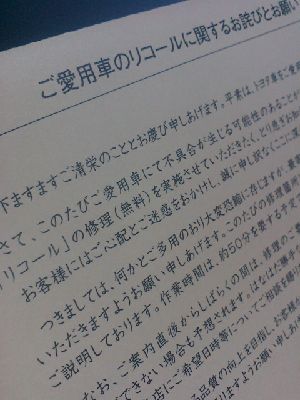 ご愛用車のリコールに関するお詫びとお願い
下ますますご清栄のこととお慶び申しあげます。平素は、トヨタ車をご愛用
さて、このたびご愛用車にて不具合が生じる可能性のあることが
リコール」の修理(無料)を実施させていただきたく、とり急ぎお知
お客様にはご心配とご迷惑をおかけし、誠に申し訳なくここに謹
つきましては、何かとご多用のおり大変恐縮に存じますが、最寄
いただきますようお願い申しあげます。このたびの修理箇所
ご説明しております。作業時間は、約50分を要する予定で
なお、ご案内直後からしばらくの間は、修理のご
できない場合も予想されます。はなはだ勝手
店にご希望日時等についてご相談を賜
品質の向上を目指し、お客様
りますようお願い申し